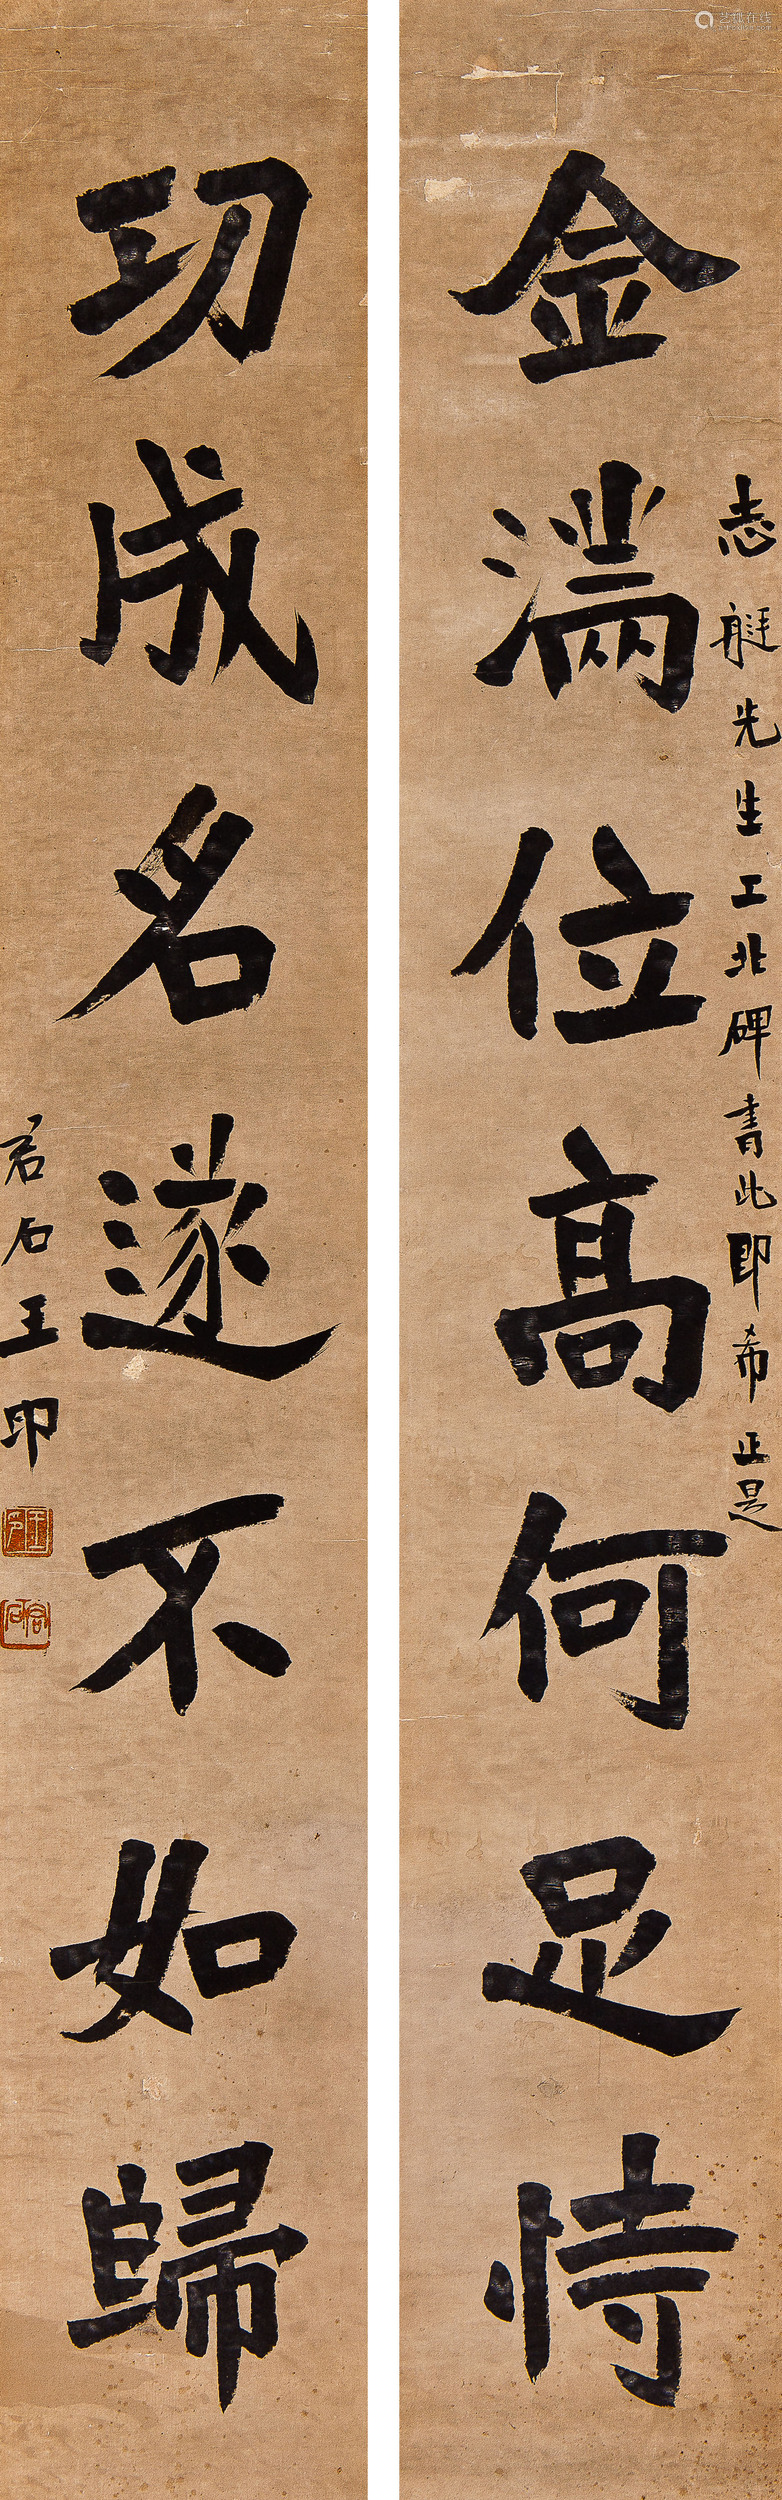 金滿位高何足恃
志艇先生工北碑書此即希正是
功成名遂不如歸
君石王印
艺狐在线